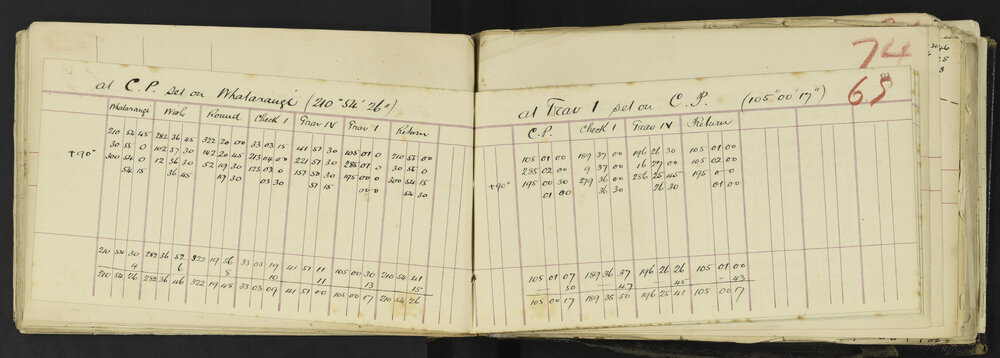 at C.P. set on Whatarangi (210° 54' 26")
Whatarangi Wirls Round Check 1 Trav IV Trav 1 Return
210 54 45 282 36 45 322 20 00 33 03 15 41 51 30 105 01 0 210 55 00
30 55 0 102 37 30 142 20 45 213 04 00 221 51 30 285 01 0 30 55 0
+90° 300 54 0 12 36 30 52 19 30 123 03 0 157 50 30 195 00 0 300 54 15
54 15 36 45 19 30 03 30 51 15 00 0 54 30
210 54 30 282 36 52 322 19 56 33 03 19 41 51 11 105 00 30 210 54 41
4 6 8 10 11 13 15
210 54 26 282 36 46 322 19 48 33 03 09 41 51 00 105 00 17 210 54 26
74
65
at Trav 1 set on C.P. (105° 00' 17")
C.P. Check 1 Trav IV Return
105 01 00 189 37 00 196 26 30 105 01 00
285 02 00 9 37 00 16 27 00 105 02 00
+90° 195 00 30 279 36 00 286 25 45 195 0-0
01 00 36 30 26 30 01 00
105 01 07 189 36 37 196 26 26 105 01 00
— 50 — 47 — 45 — 43
105 00 17 189 35 50 196 25 41 105 00 17